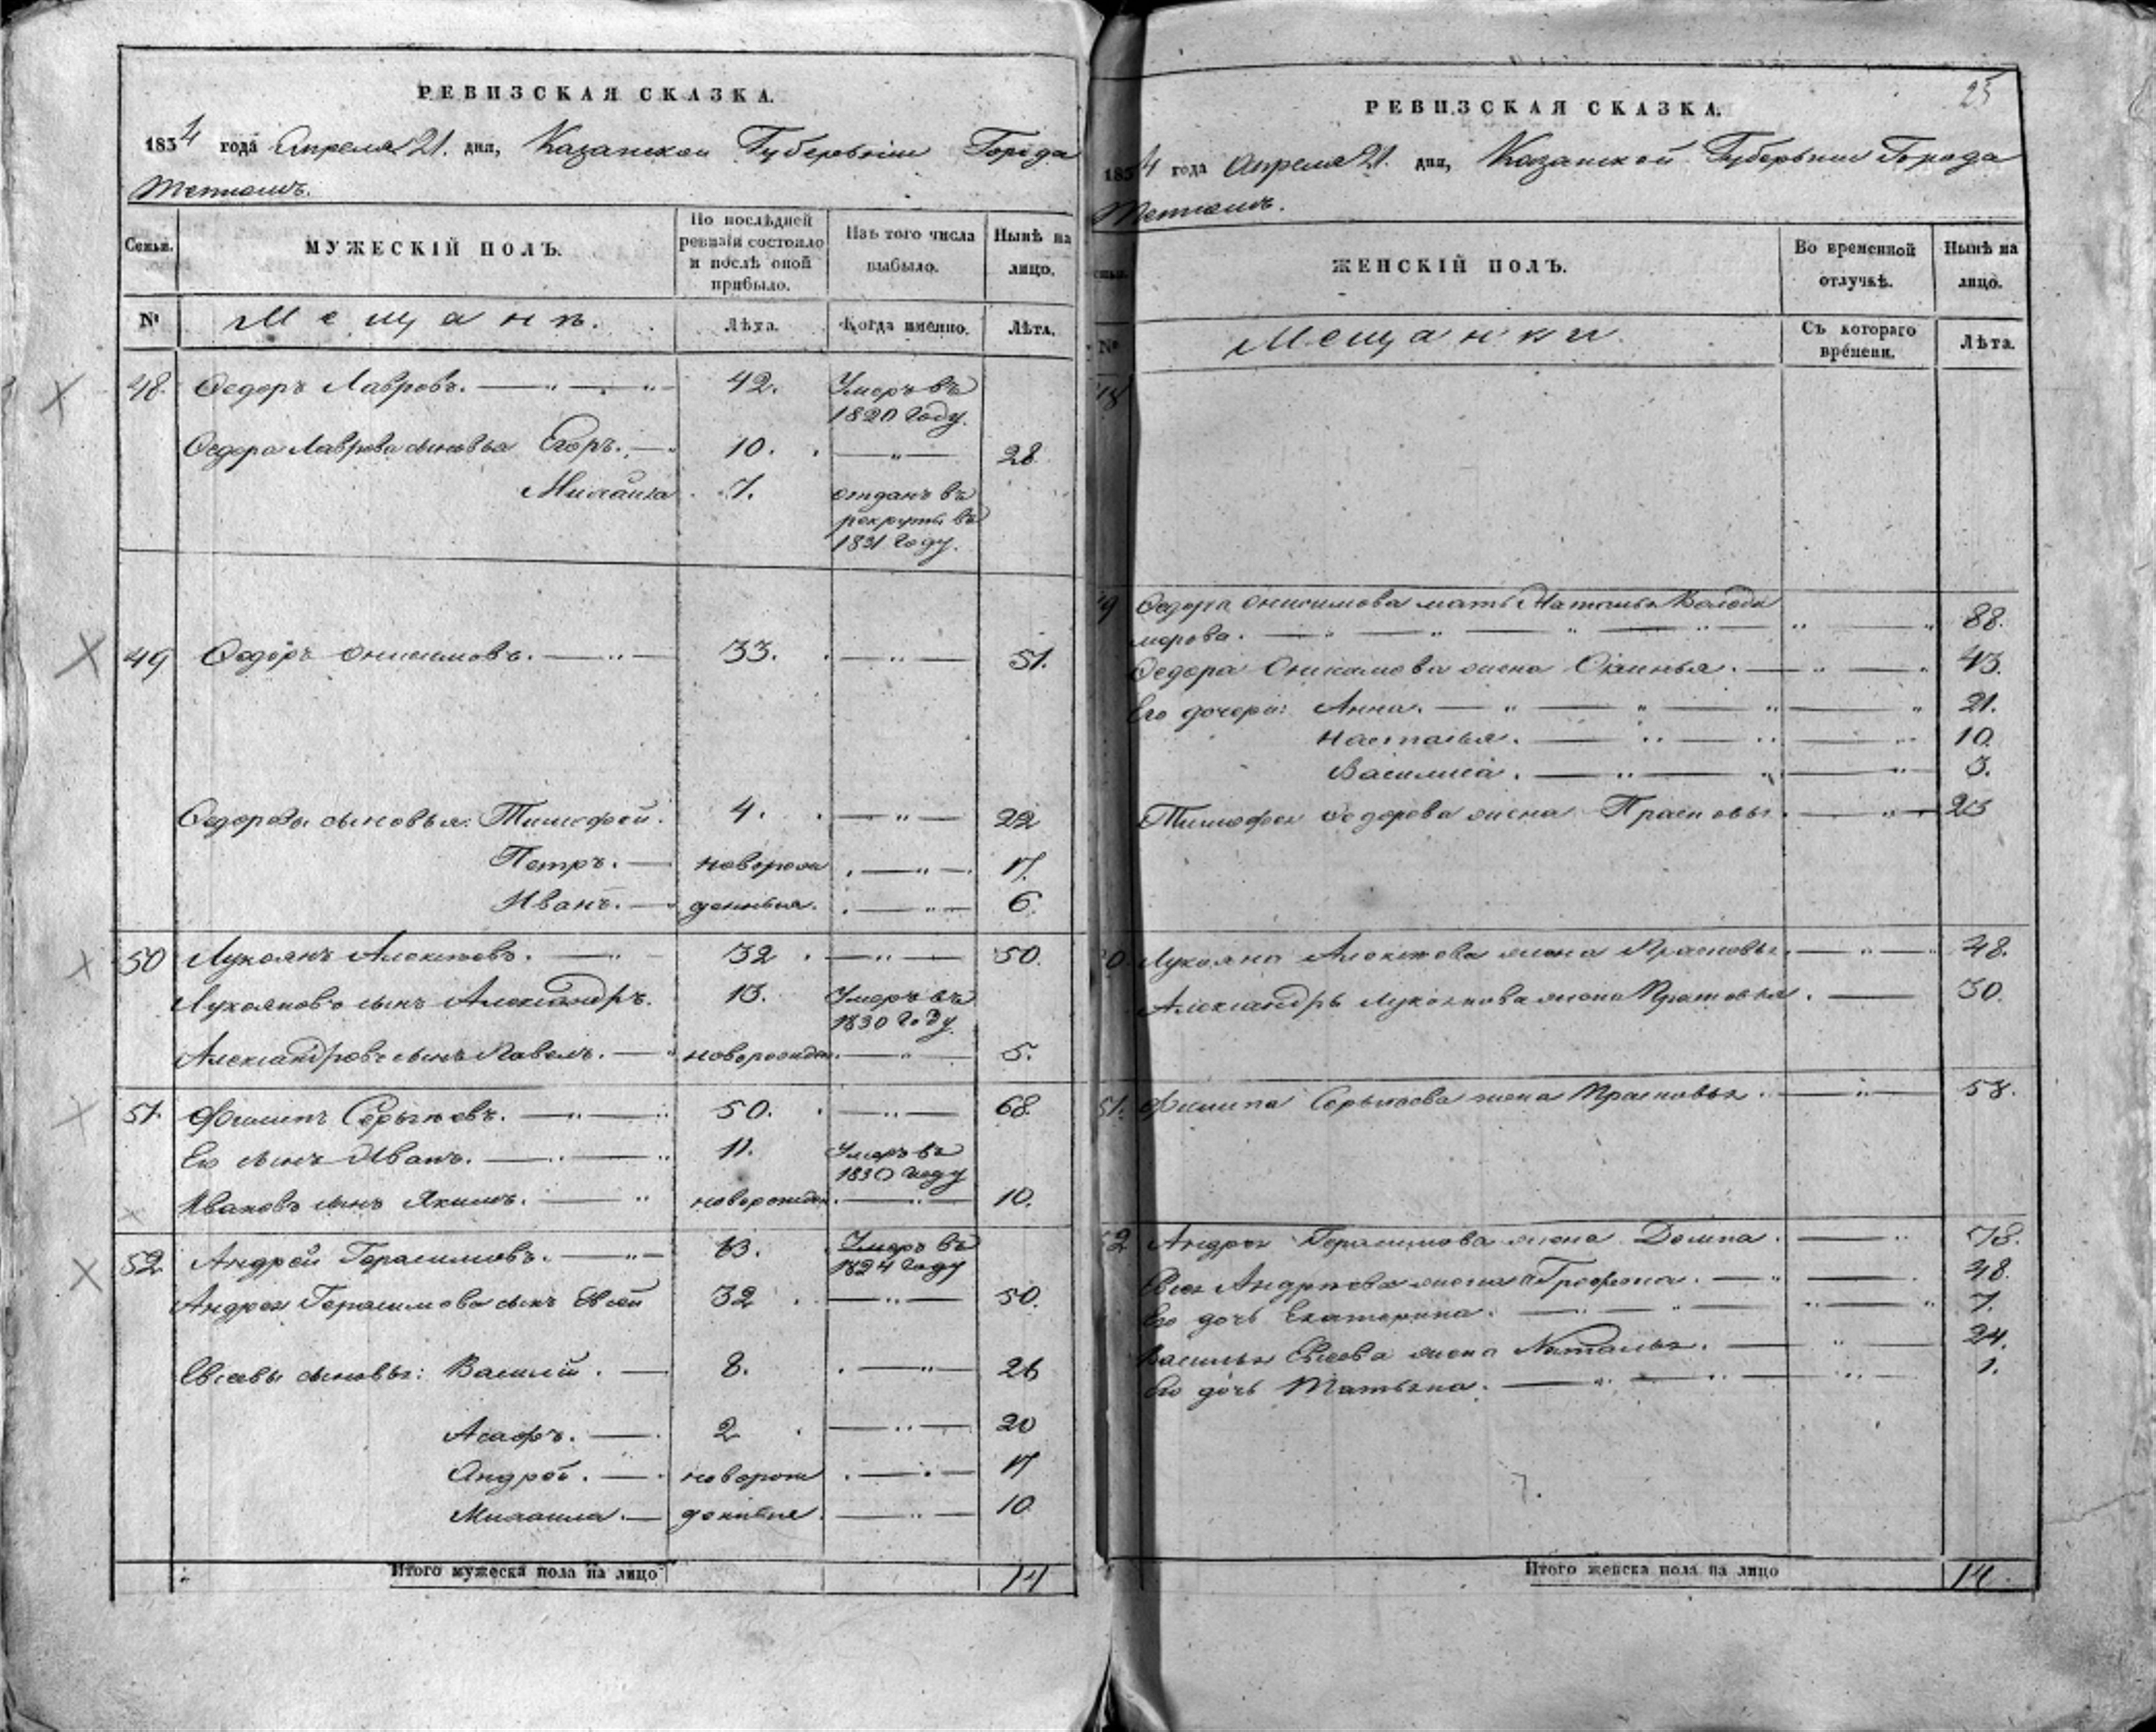 РЕВИЗСКАЯ СКАЗКА.
1834 года Апреля 21. дня, Казанской Губернии Города
Тетюшъ.
Семьи.
МУЖЕСКІЙ ПОЛЪ.
По послѣдней
ревизіи состояло
и послѣ оной
прибыло.
Изъ того числа
выбыло.
Нынѣ на
лицо.
№
Мещанъ.
Лѣта.
Когда именно.
Лѣта.
48. Ѳедоръ Лавровъ. 42. Умеръ въ
1820 году.
Ѳедора Лаврова сыновья Егоръ. 10. 28
Михайла 7. отданъ въ
рекруты въ
1831 году.
49 Ѳедоръ Онисимовъ. 33. 51.
Ѳедоровы сыновья: Тимофей. 4. 22
Петръ. новорож 17.
Иванъ. денныя. 6.
50 Лукоянъ Алексѣевъ. 32 50.
Лукояновъ сынъ Александръ. 13. Умеръ въ
1830 году.
Александровъ сынъ Павелъ. новорожден. 5.
51. Филипъ 50. 68.
Его сынъ Иванъ. 11. Умеръ въ
1830 году
Ивановъ сынъ Якимъ. новорожден. 10.
52. Андрей Герасимовъ. 63. Умеръ въ
1824 году
Андрея Герасимова сынъ Евсей 32 50.
Евсевы сыновья: Василій. 8. 26
Асафъ. 2 20
Андрей. новорож 17
Михаила. денныя. 10
Итого мужеска пола на лицо 14
25
РЕВИЗСКАЯ СКАЗКА.
1834 года Апреля 21. дня, Казанской Губернии Города
Тетюшъ.
ЖЕНСКІЙ ПОЛЪ.
Во временной
отлучкѣ.
Нынѣ на
лицо.
№
Мещанки.
Съ котораго
времени.
Лѣта.
48
49 Ѳедора Онисимова мать Наталья Володи
мерова. 88.
Ѳедора Онисимова жена Аксинья. 43.
Его дочери: Анна. 21.
Настасья. 10.
Василиса. 3.
Тимофея Ѳедорова жена Прасковья. 23
50. Лукояна Алексѣева жена Прасковья. 48.
Александра Лукоянова жена Прасковья. 30.
51. Филипа жена Прасковья. 58.
52 Андрея Герасимова жена Домна. 78.
Евсея Андрѣева жена 48.
Его дочь Екатерина. 7.
Василья Евсева жена Наталья. 24.
Его дочь Татьяна. 1.
Итого женска пола на лицо 14.